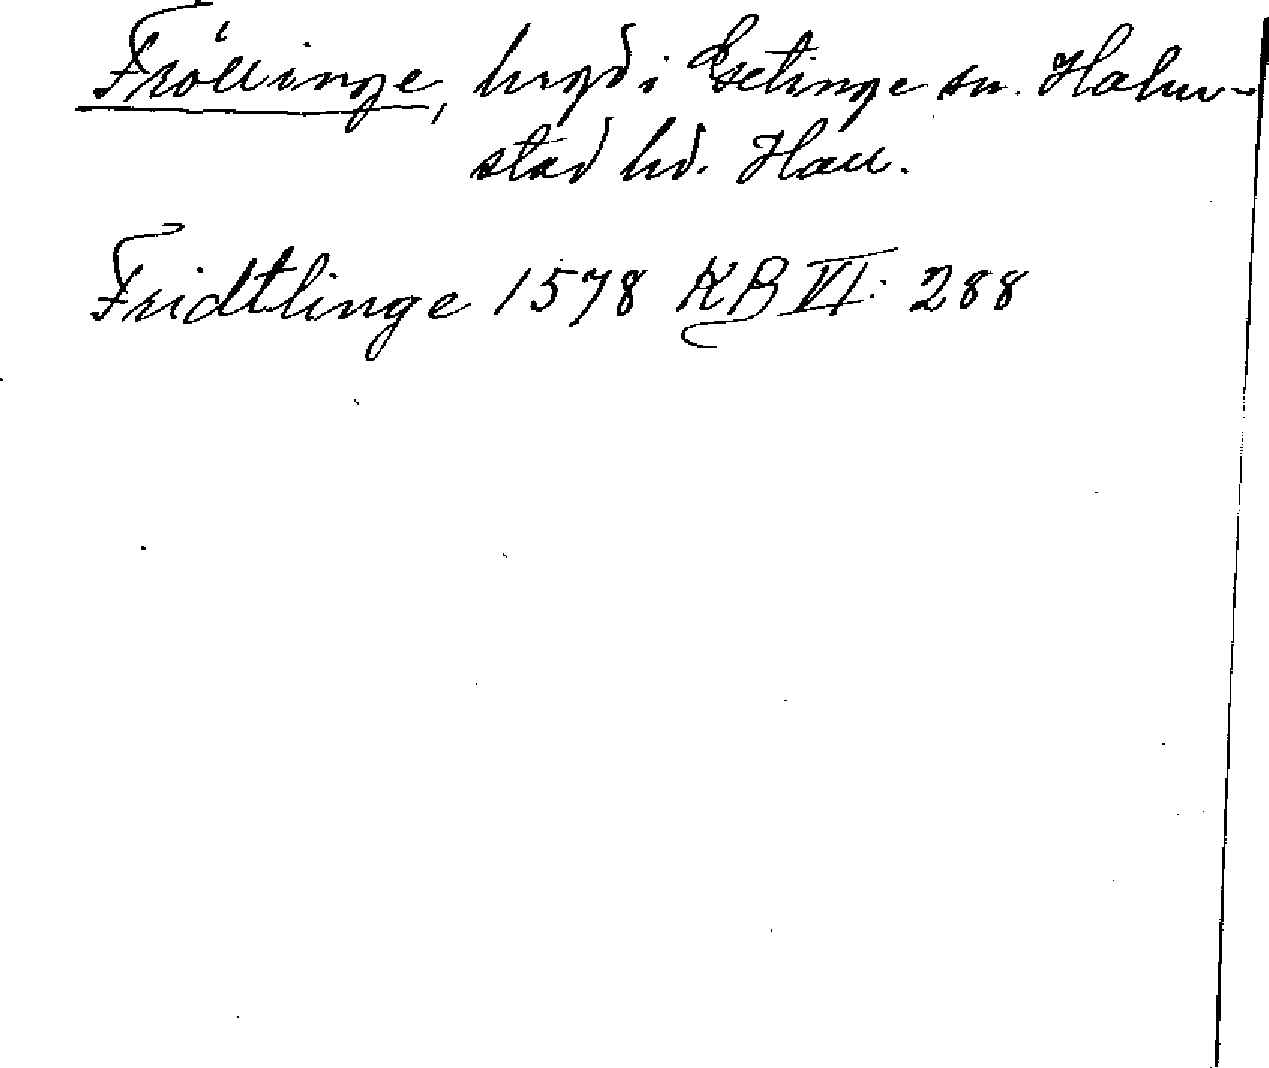 Fröllinge, hrgd i Getinge sn. Halm-
stad hd. Hall.
Fridtlinge 1578 KB VI: 288